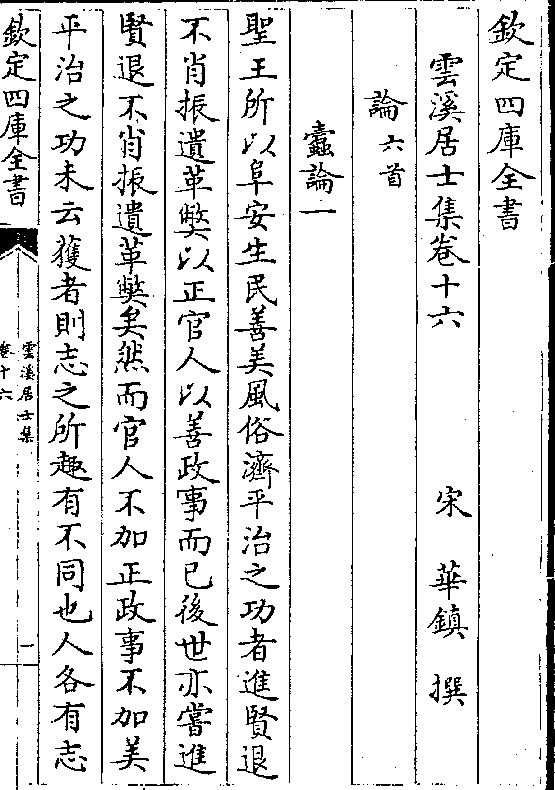 欽定四庫全書
雲溪居士集卷十六
宋 華鎮 撰
論六首
蠹論一
聖王所以阜安生民善美風俗濟平治之功者進賢退
不肖振遺革弊以正官人以善政事而已後世亦嘗進
賢退不肖振遺革弊矣然而官人不加正政事不加美
平治之功未云獲者則志之所趣有不同也人各有志
欽定四庫全書
雲溪居士集
卷十六
一